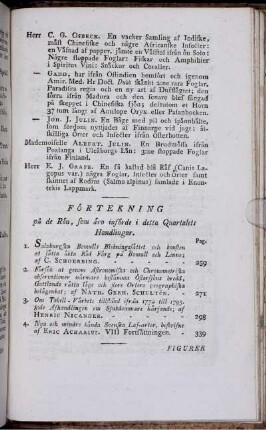 Herr C. G. Gerck. En vacker Samling af Indiske,
mäst Chinesiske och någre Africanske Insecter:
en Våstad af papper, jämte en Våstad ifrån ön Solo:
Någre stoppade Foglar: Fiskar och Amphibier
i Spiritus Vini: Snäckor och Coraller.
— Gahd, har ifrån Ostindien hemfört och igenom
Amir. Med. Hr Doct. Dubb skänkt åtta rara Foglar,
Paradisea regia och en ny art af Duflslägtet; den
förra ifrån Madura och den senare blef fångad
på skeppet i Chinesiska sjön; desutom et Horn
37 tum långt af Antilope Oryx eller Palanbocken.
— Jon. J. Julin. En Båge med pil och spjälmåla,
som fordom nyttjades af Finnarne vid jagt: åt-
skillige Örter och Insecter ifrån Österbotten.
Mademoiselle Albert. Julin. En Brudmössa ifrån
Peulanga i Uleåborgs Län: ägne stoppade Foglar
ifrån Finland.
Herr E. J. Grape. En få kallad blå Räf (Canis La-
gopus var.) några Foglar, Insecter och Örter samt
skinnet af Roding (Salmo alpinus) samlade i Enon-
tekis Lappmark.
FÖRTEKNING
på de Rön, som äro införde i detta Quartalets
Handlingar.
Pag.
1. Salzburgska Bomulls Blekningssättet och konsten
at sätta äkta Röd Färg på Bomull och Linne;
af C. Schoerbing. 259
2. Försök at genom Astronomiska och Chronometriska
observationer närmare bestämma Östersjöns bredd,
Gottlands rätta läge och flere Orters geographiska
belägenhet; af Nath. Gerh. Schultén. 271
3. Om Tabell-Värkets tilstånd ifrån 1772 til 1795,
5:te Afhandlingen om Sjukdomars härjande; af
Henric Nicander. 298
4. Nya och mindre kända Svenska Laf-arter, beskrifne
af Eric Acharius. VIII Fortsättningen. 339
FIGURER